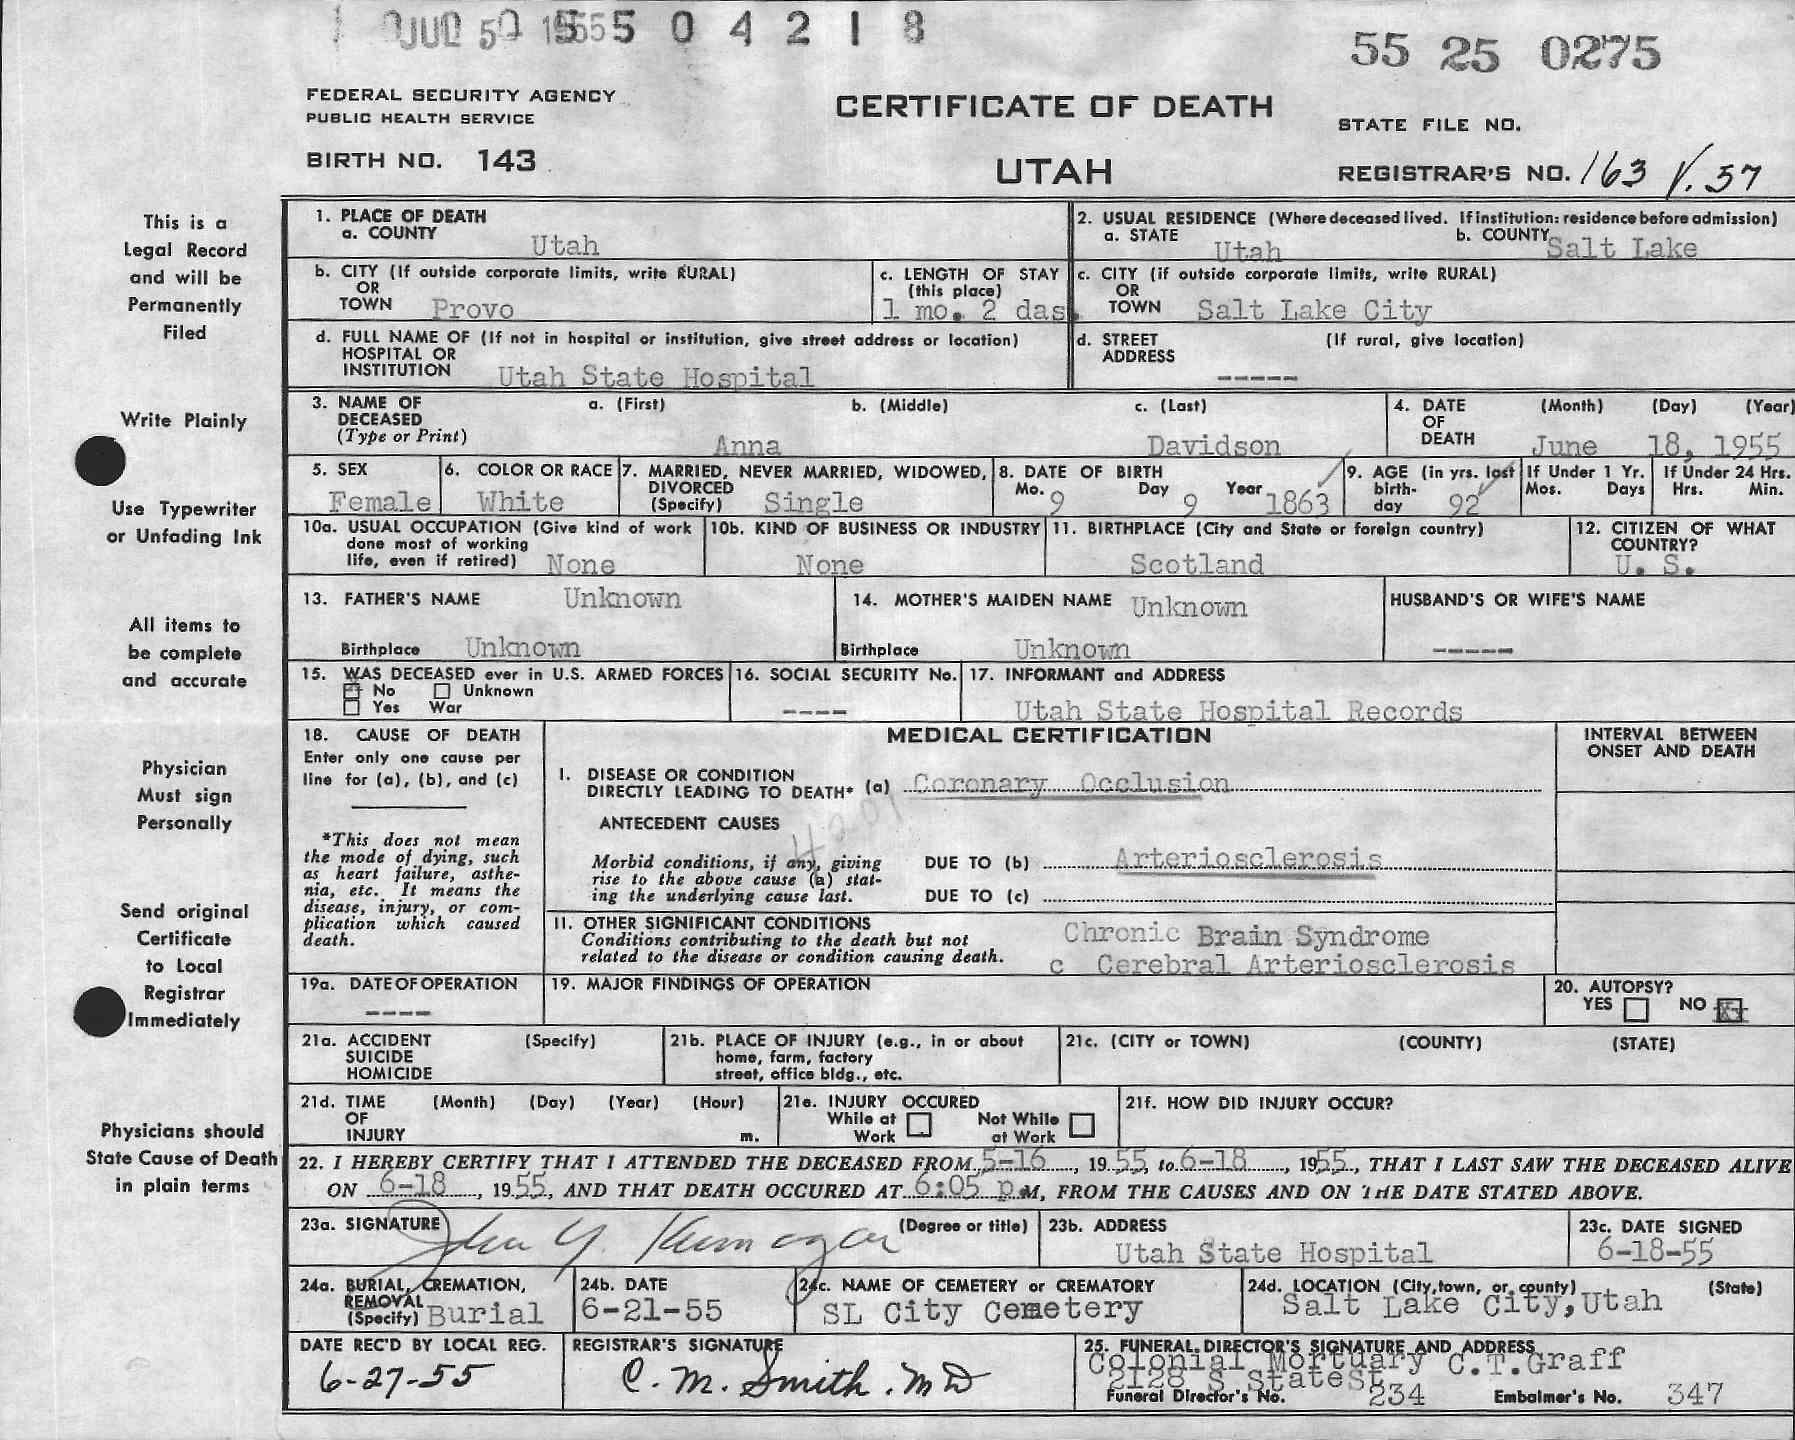 JUL 5 1955 5 5 0 4 2 1 8
55 25 0275
FEDERAL SECURITY AGENCY
PUBLIC HEALTH SERVICE
CERTIFICATE OF DEATH
STATE FILE NO.
BIRTH NO. 143
UTAH
REGISTRAR'S NO. 163 V. 57
This is a
Legal Record
and will be
Permanently
Filed
Write Plainly
Use Typewriter
or Unfading Ink
All items to
be complete
and accurate
Physician
Must sign
Personally
Send original
Certificate
to Local
Registrar
Immediately
Physicians should
State Cause of Death
in plain terms
1. PLACE OF DEATH
a. COUNTY Utah
2. USUAL RESIDENCE (Where deceased lived. If institution: residence before admission)
a. STATE Utah b. COUNTY Salt Lake
b. CITY (If outside corporate limits, write RURAL)
OR
TOWN Provo
c. LENGTH OF STAY
(this place)
1 mo. 2 das.
c. CITY (if outside corporate limits, write RURAL)
OR
TOWN Salt Lake City
d. FULL NAME OF (If not in hospital or institution, give street address or location)
HOSPITAL OR
INSTITUTION Utah State Hospital
d. STREET (If rural, give location)
ADDRESS -----
3. NAME OF a. (First) b. (Middle) c. (Last)
DECEASED
(Type or Print) Anna Davidson
4. DATE (Month) (Day) (Year)
OF
DEATH June 18, 1955
5. SEX
Female
6. COLOR OR RACE
White
7. MARRIED, NEVER MARRIED, WIDOWED,
DIVORCED
(Specify) Single
8. DATE OF BIRTH
Mo. 9 Day 9 Year 1863
9. AGE (in yrs. last
birth-
day 92
If Under 1 Yr.
Mos. Days
If Under 24 Hrs.
Hrs. Min.
10a. USUAL OCCUPATION (Give kind of work
done most of working
life, even if retired) None
10b. KIND OF BUSINESS OR INDUSTRY
None
11. BIRTHPLACE (City and State or foreign country)
Scotland
12. CITIZEN OF WHAT
COUNTRY?
U. S.
13. FATHER'S NAME Unknown
Birthplace Unknown
14. MOTHER'S MAIDEN NAME Unknown
Birthplace Unknown
HUSBAND'S OR WIFE'S NAME
-----
15. WAS DECEASED ever in U.S. ARMED FORCES
No Unknown
Yes War
16. SOCIAL SECURITY No.
----
17. INFORMANT and ADDRESS
Utah State Hospital Records
18. CAUSE OF DEATH
Enter only one cause per
line for (a), (b), and (c)
*This does not mean
the mode of dying, such
as heart failure, asthe-
nia, etc. It means the
disease, injury, or com-
plication which caused
death.
MEDICAL CERTIFICATION
INTERVAL BETWEEN
ONSET AND DEATH
I. DISEASE OR CONDITION
DIRECTLY LEADING TO DEATH* (a) Coronary Occlusion
ANTECEDENT CAUSES
Morbid conditions, if any, giving
rise to the above cause (a) stat-
ing the underlying cause last.
DUE TO (b) Arteriosclerosis
DUE TO (c)
II. OTHER SIGNIFICANT CONDITIONS
Conditions contributing to the death but not
related to the disease or condition causing death.
Chronic Brain Syndrome
c Cerebral Arteriosclerosis
19a. DATE OF OPERATION
----
19. MAJOR FINDINGS OF OPERATION
20. AUTOPSY?
YES NO
21a. ACCIDENT (Specify)
SUICIDE
HOMICIDE
21b. PLACE OF INJURY (e.g., in or about
home, farm, factory
street, office bldg., etc.
21c. (CITY or TOWN) (COUNTY) (STATE)
21d. TIME (Month) (Day) (Year) (Hour)
OF
INJURY m.
21e. INJURY OCCURED
While at Not While
Work at Work
21f. HOW DID INJURY OCCUR?
22. I HEREBY CERTIFY THAT I ATTENDED THE DECEASED FROM 5-16, 1955 to 6-18, 1955, THAT I LAST SAW THE DECEASED ALIVE
ON 6-18, 1955, AND THAT DEATH OCCURED AT 6:05 p.M, FROM THE CAUSES AND ON THE DATE STATED ABOVE.
23a. SIGNATURE (Degree or title)
23b. ADDRESS
Utah State Hospital
23c. DATE SIGNED
6-18-55
24a. BURIAL, CREMATION,
REMOVAL
(Specify) Burial
24b. DATE
6-21-55
24c. NAME OF CEMETERY or CREMATORY
SL City Cemetery
24d. LOCATION (City, town, or county) (State)
Salt Lake City, Utah
DATE REC'D BY LOCAL REG.
6-27-55
REGISTRAR'S SIGNATURE
C. M. Smith. MD
25. FUNERAL DIRECTOR'S SIGNATURE AND ADDRESS
Colonial Mortuary C.T.Graff
2128 S State St
Funeral Director's No. 234 Embalmer's No. 347